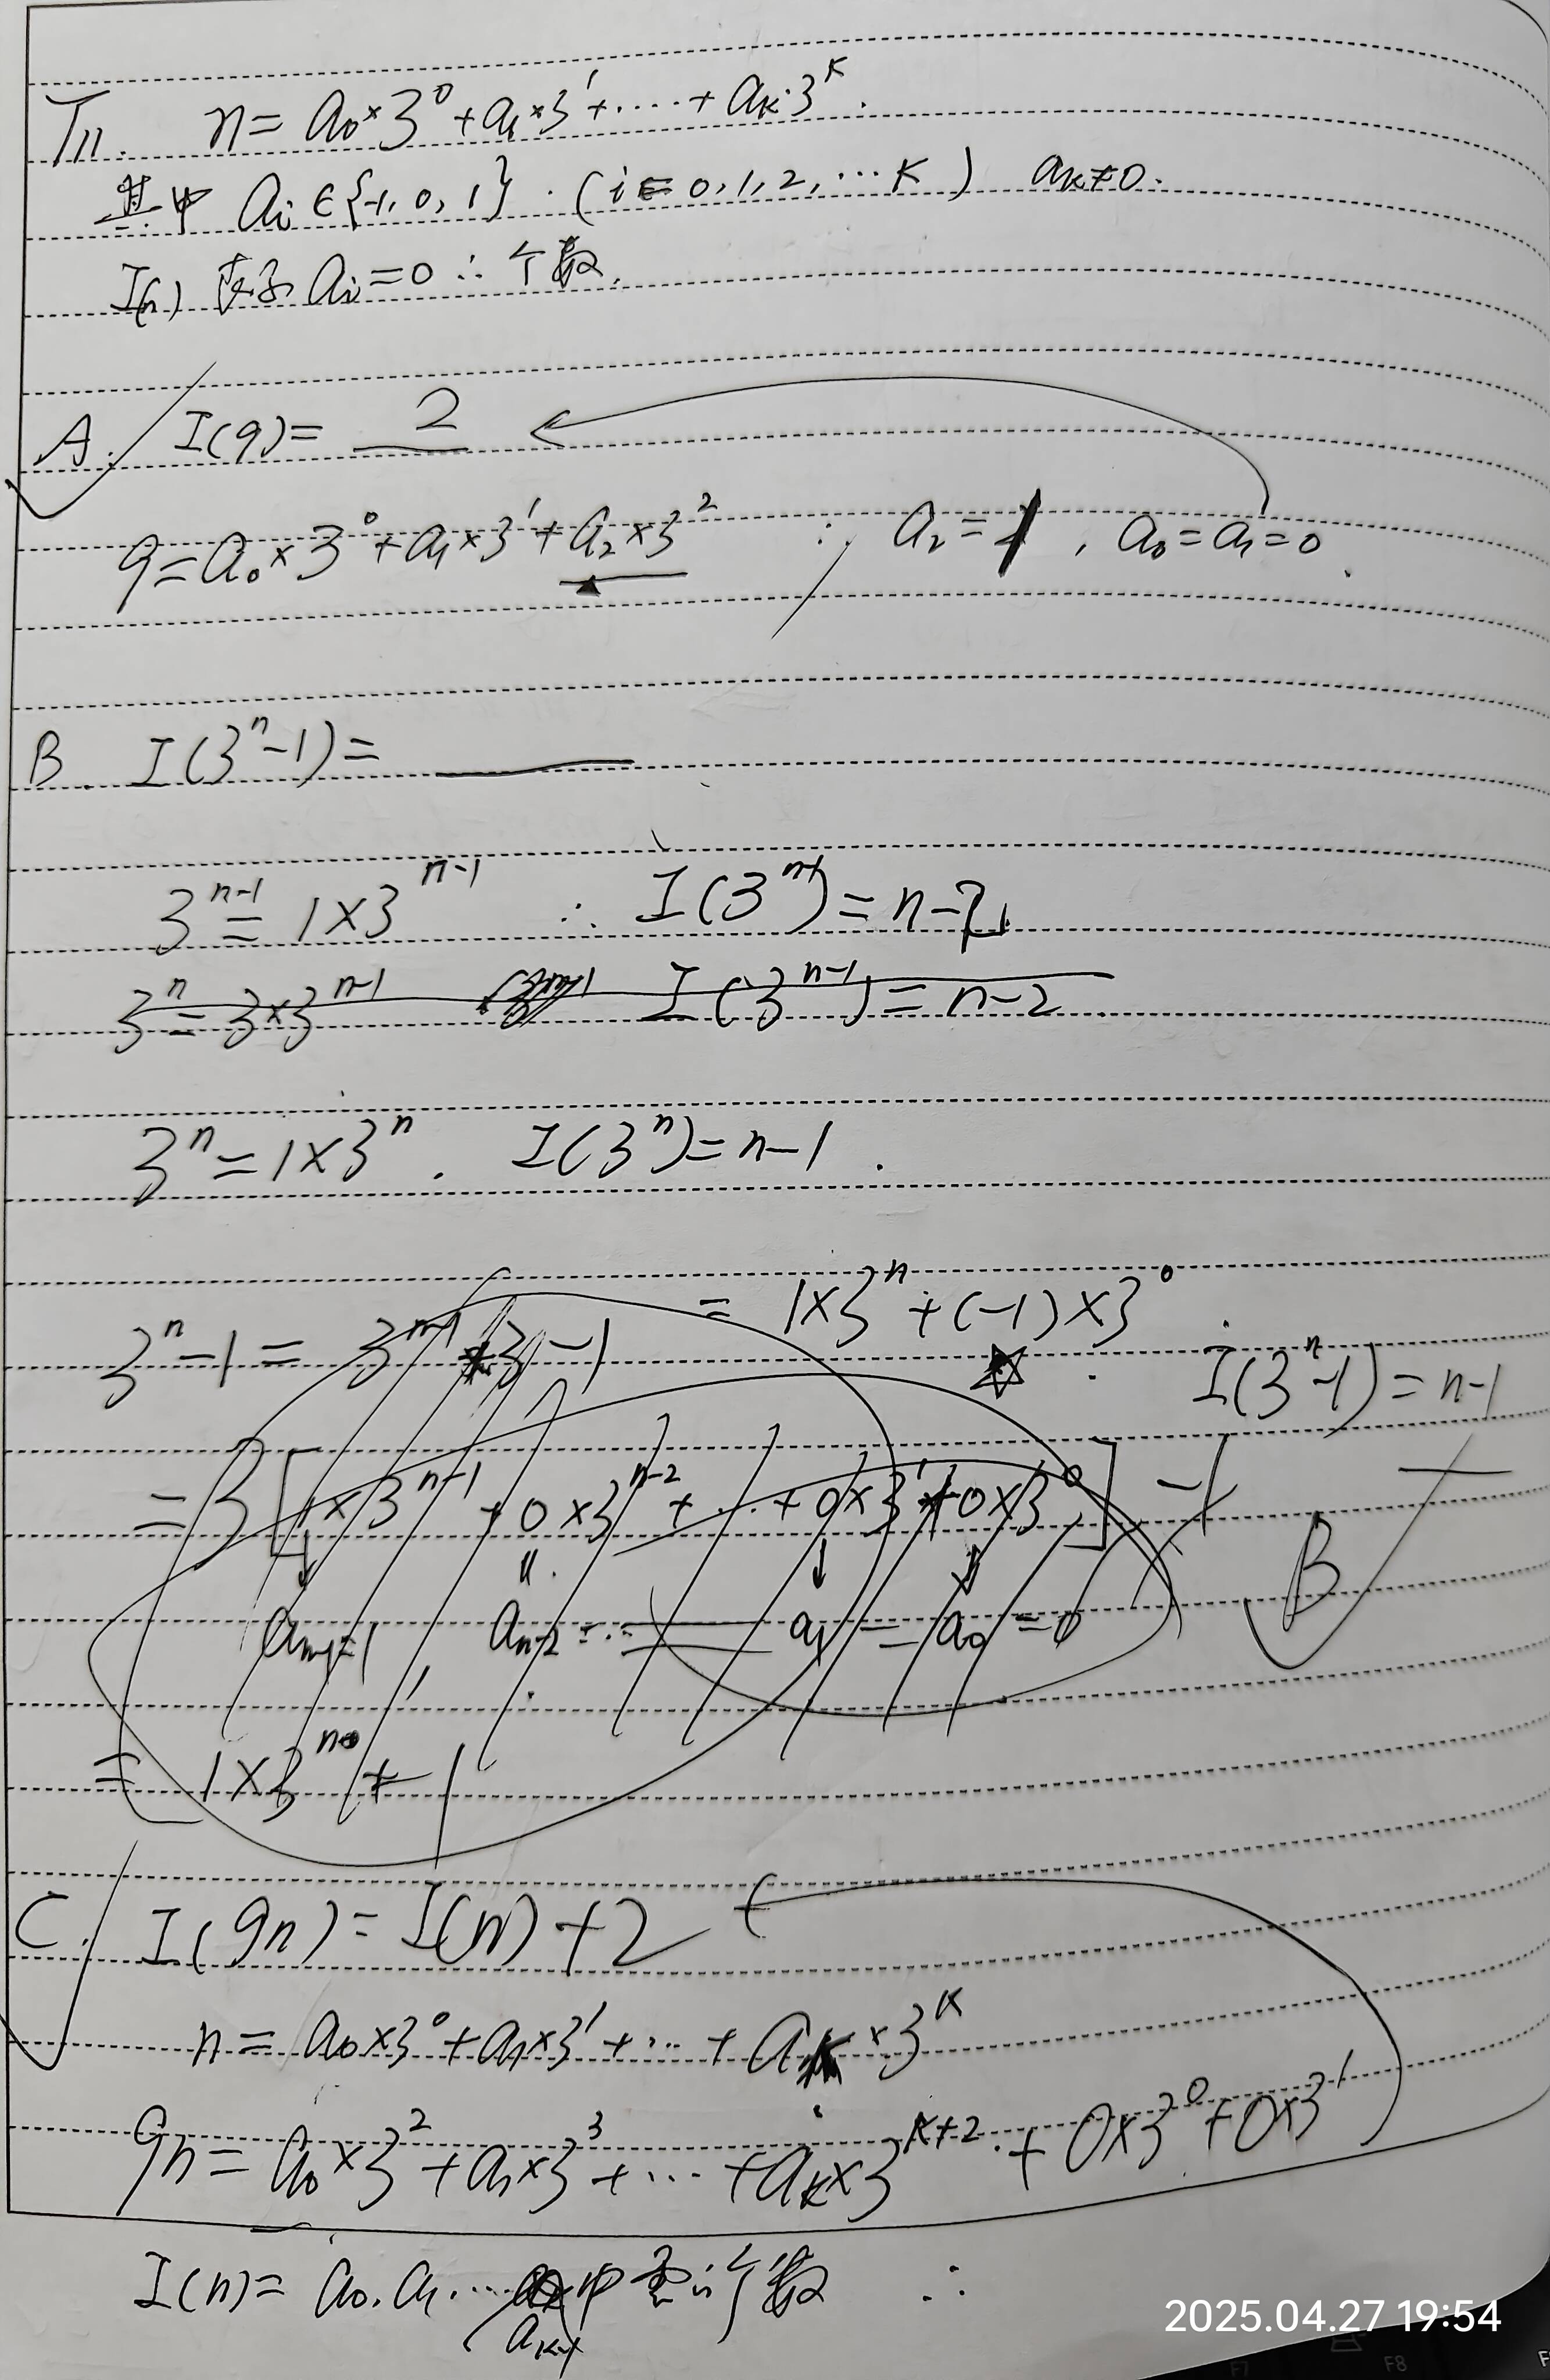 T11. n=a₀×3⁰+a₁×3¹+……+aₖ·3ᵏ.
其中 aᵢ∈{-1,0,1}.(i=0,1,2,…k) aₖ≠0.
I(n) 表示 aᵢ=0 ∴ 个数.
A. I(9)= 2
9=a₀×3⁰+a₁×3¹+a₂×3² ∴ a₂=1, a₀=a₁=0.
B. I(3ⁿ-1)=
3ⁿ⁻¹=1×3ⁿ⁻¹ ∴ I(3ⁿ⁻¹)=n-
3ⁿ=3×3ⁿ⁻¹ I(3ⁿ⁻¹)=n-2
3ⁿ=1×3ⁿ. I(3ⁿ)=n-1.
=1×3ⁿ+(-1)×3⁰.
3ⁿ-1=3ⁿ⁻¹·3-1
☆. I(3ⁿ-1)=n-1
=3[1×3ⁿ⁻¹+0×3ⁿ⁻²+…+0×3¹+0×3⁰]-1
B
aₙ₋₁=1, aₙ₋₂=…=a₁=a₀=0
=1×3ⁿ+-1
C. I(9n)=I(n)+2
n=a₀×3⁰+a₁×3¹+…+aₖ×3ᵏ
9n=a₀×3²+a₁×3³+…+aₖ×3ᵏ⁺²+0×3⁰+0×3¹
I(n)=a₀.a₁.… 中零的个数 ∴
aₖ₋₁
2025.04.27 19:54
F7
F8